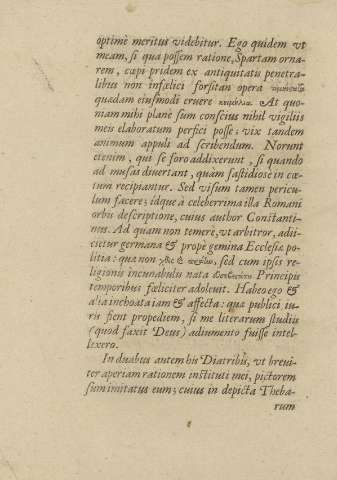 optimè meritus videbitur. Ego quidem vt
meam, si qua possem ratione, Spartam orna-
rem, cœpi pridem ex antiquitatis penetra-
libus non infœlici forsitan opera
quadam eiusmodi eruere κειμήλια. At quo-
niam mihi planè sum conscius nihil vigiliis
meu elaboratum perfici posse; vix tandem
animum appuli ad scribendum. Norunt
etenim, qui se foro addixerunt, si quando
ad musas diuertant, quàm fastidiose in cœ-
tum recipiantur. Sed visum tamen pericu-
lum facere; idque à celeberrima illa Romani
orbis descriptione, cuius author Constanti-
nus. Ad quam non temerè, vt arbitror, adii-
citur germana & propè gemina Ecclesiæ po-
litia: qua non sed cum ipsis re-
ligionis incunabulis nata Principis
temporibus fœliciter adoleuit. Habeo ego &
alia inchoata iam & affecta: qua publici iu-
ris fient propediem, si me literarum studiis
(quod faxit Deus) adiumento fuisse intel-
lexero.
In duabus autem his Diatribis, vt breui-
ter aperiam rationem instituti mei, pictorem
sum imitatus eum; cuius in depicta Theba-
rum